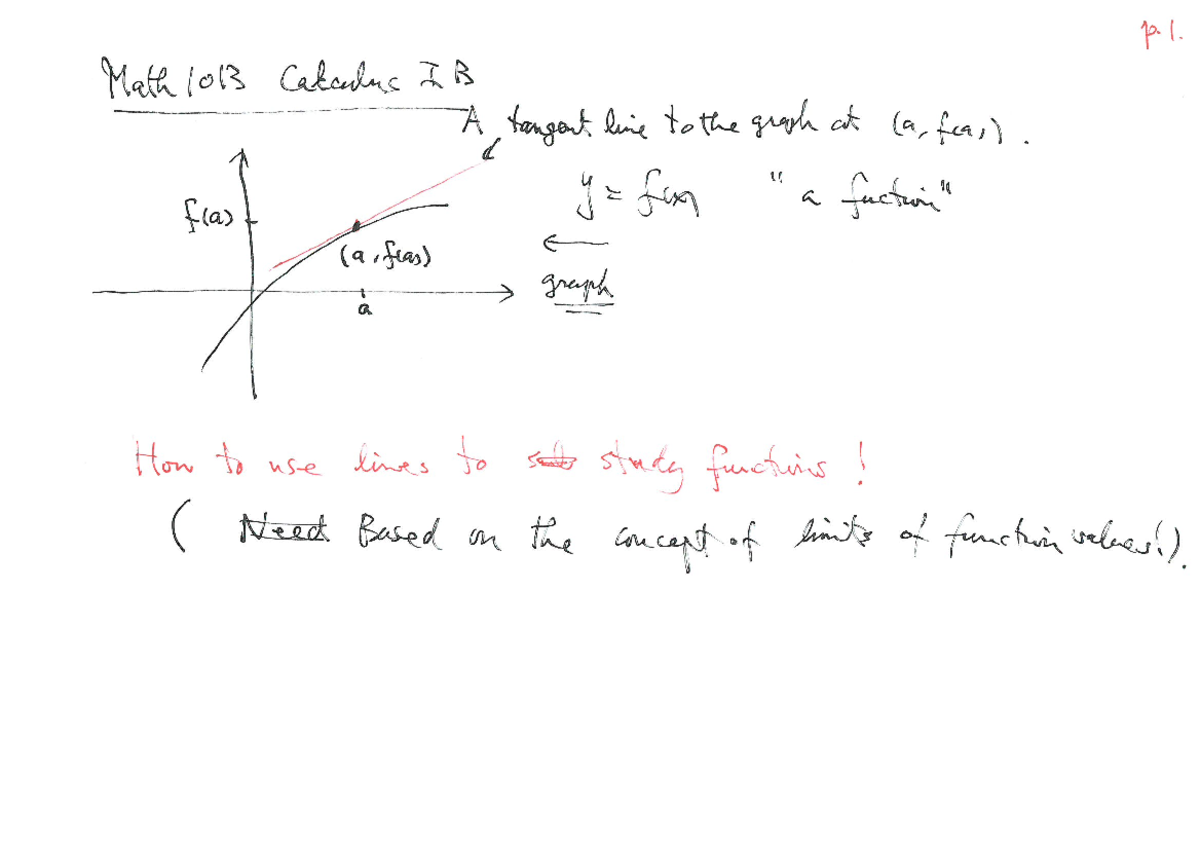 p.1.
Math 1013 Calculus I B
A tangent line to the graph at (a, f(a)).
y = f(x) "a fuction"
f(a)
(a, f(a))
graph
a
How to use lines to study functions!
( Need Based on the concept of limits of function values!).